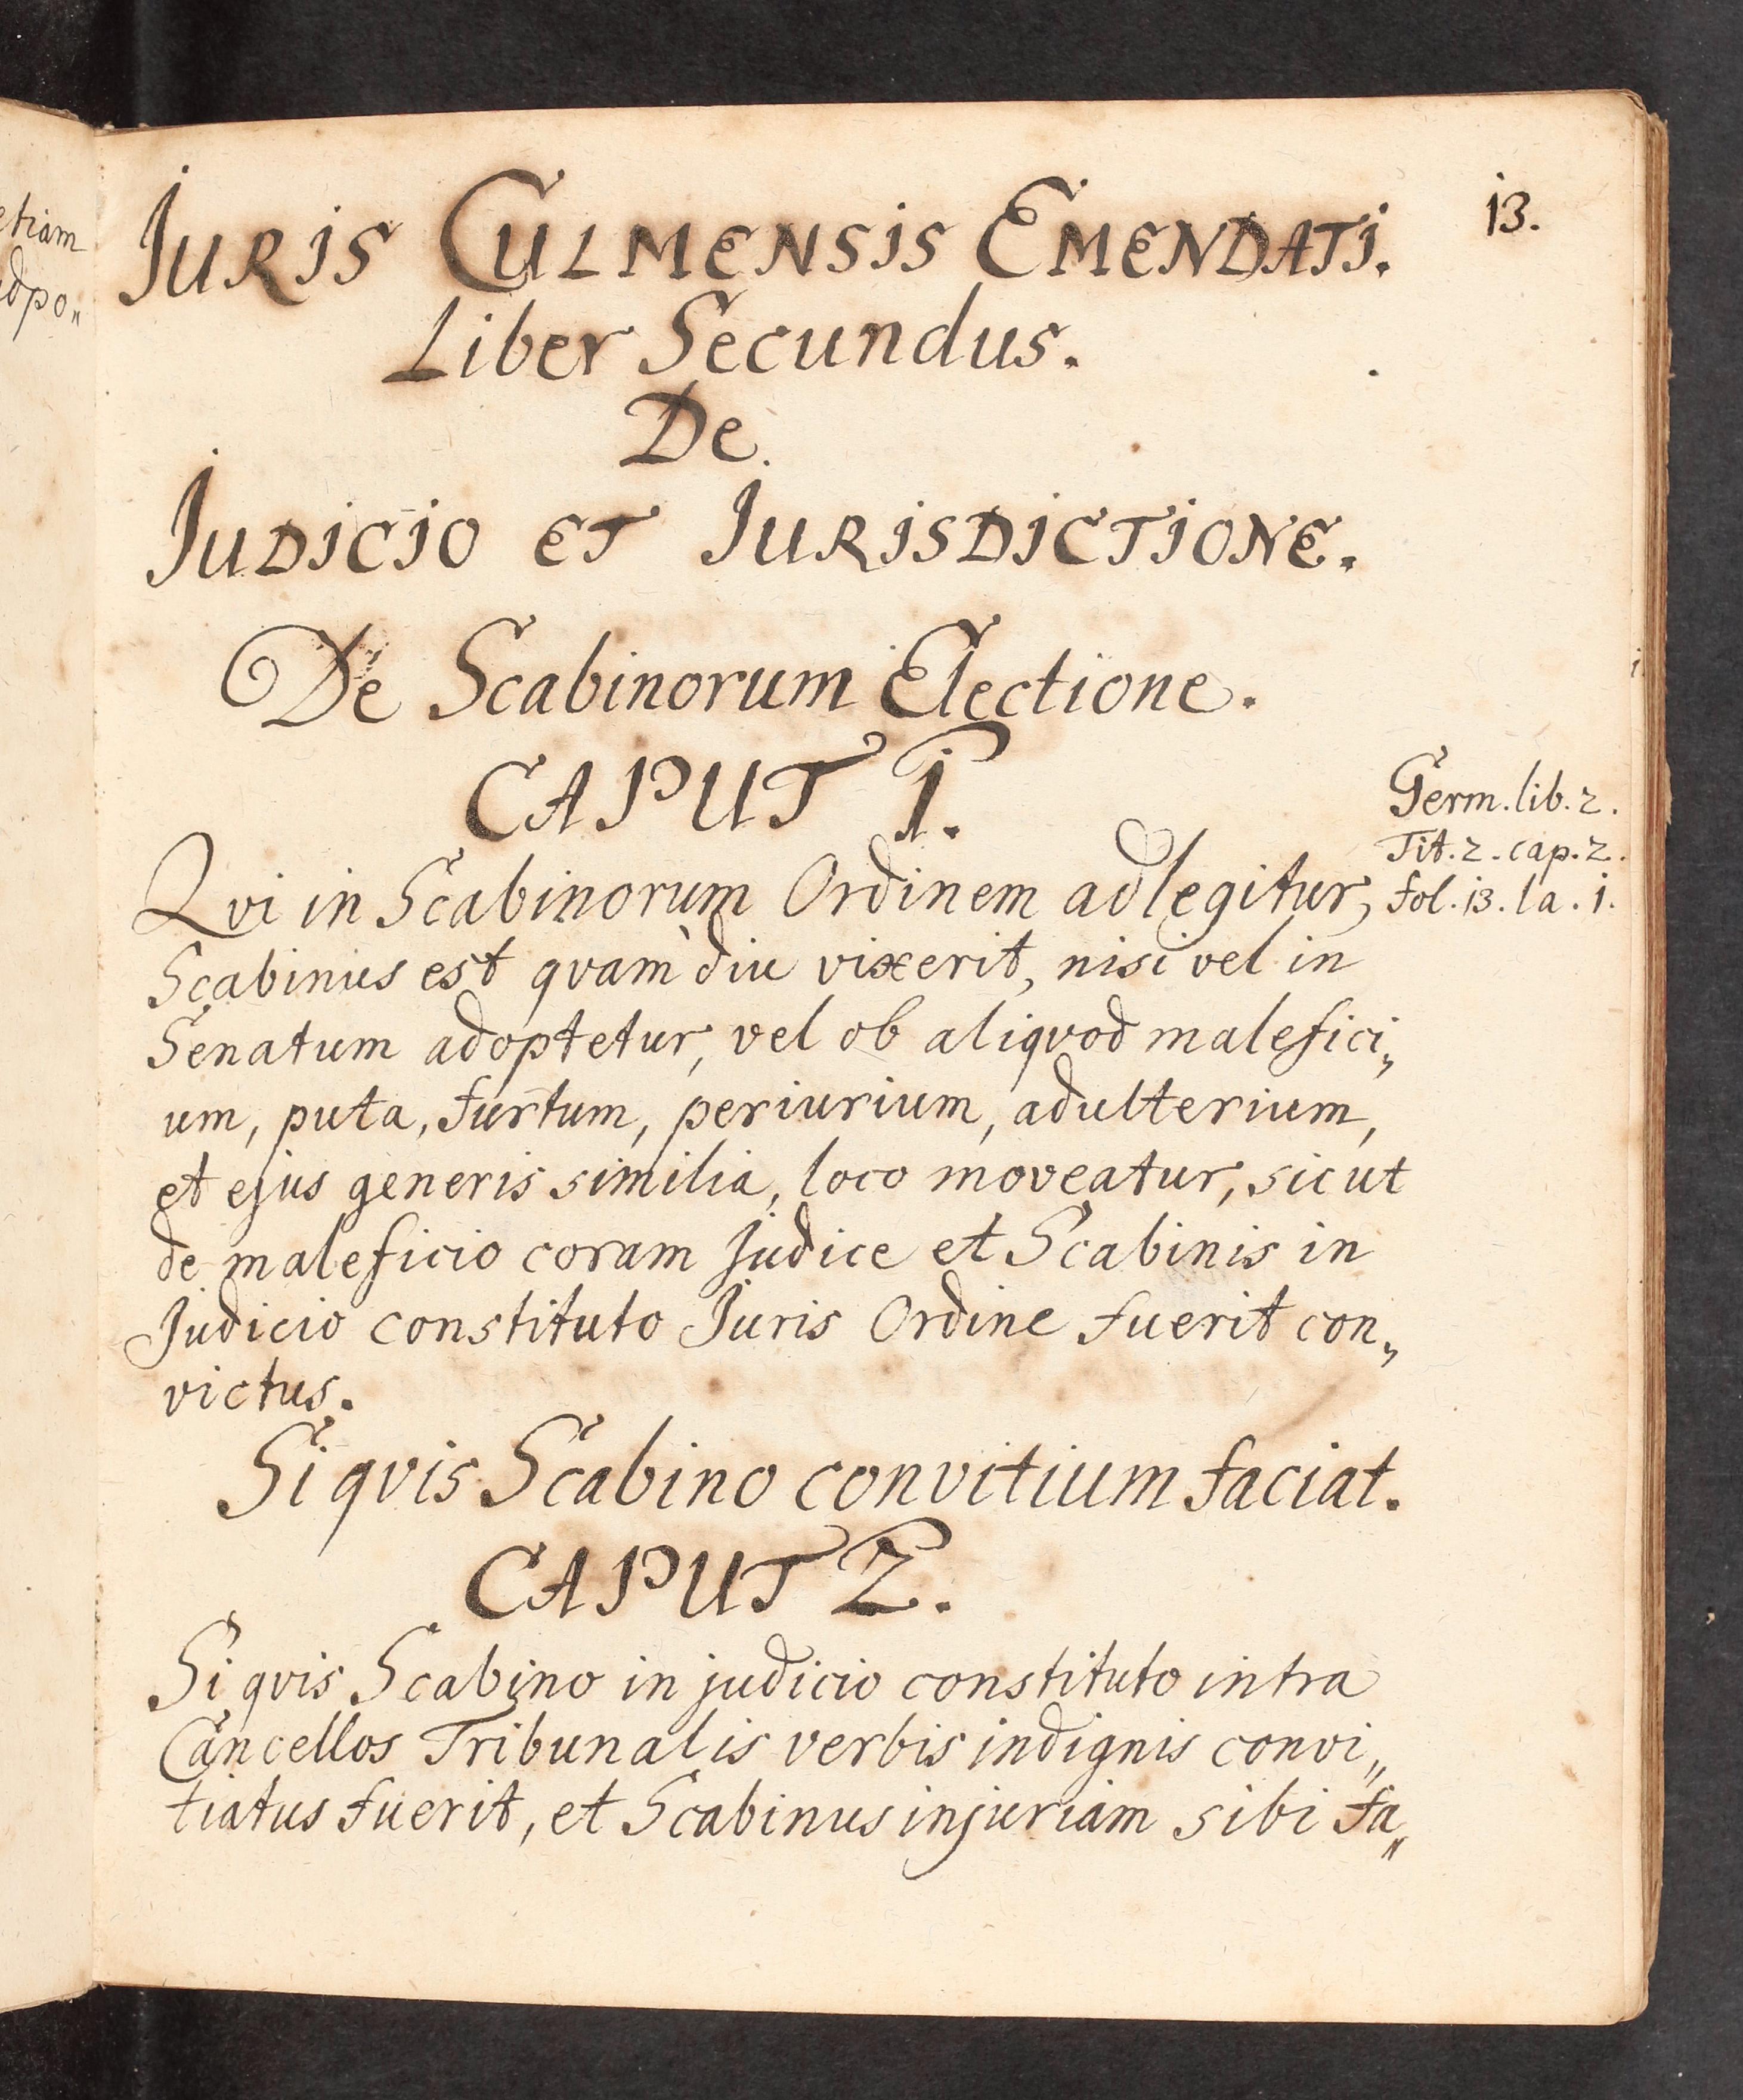 etiam
dpo„
13.
JURIS CULMENSIS EMENDATI.
Liber Secundus.
De
JUDICIO ET JURISDICTIONE.
De Scabinorum Electione.
CAPUT 1.
Germ. lib. 2.
Tit. 2. cap. 2.
fol. 13. la. 1.
Qvi in Scabinorum Ordinem adlegitur,
Scabinus est qvam̀ diu vixerit, nisi vel in
Senatum adoptetur, vel ob aliqvod malefici„
um, puta, furtum, periurium, adulterium,
et ejus generis similia, loco moveatur, sicut
de maleficio coram Judice et Scabinis in
Judicio constituto Juris Ordine fuerit con„
victus.
Si qvis Scabino convitium faciat.
CAPUT 2.
Si qvis Scabino in judicio constituto intra
Cancellos Tribunalis verbis indignis convi„
tiatus fuerit, et Scabinus injuriam sibi fa„